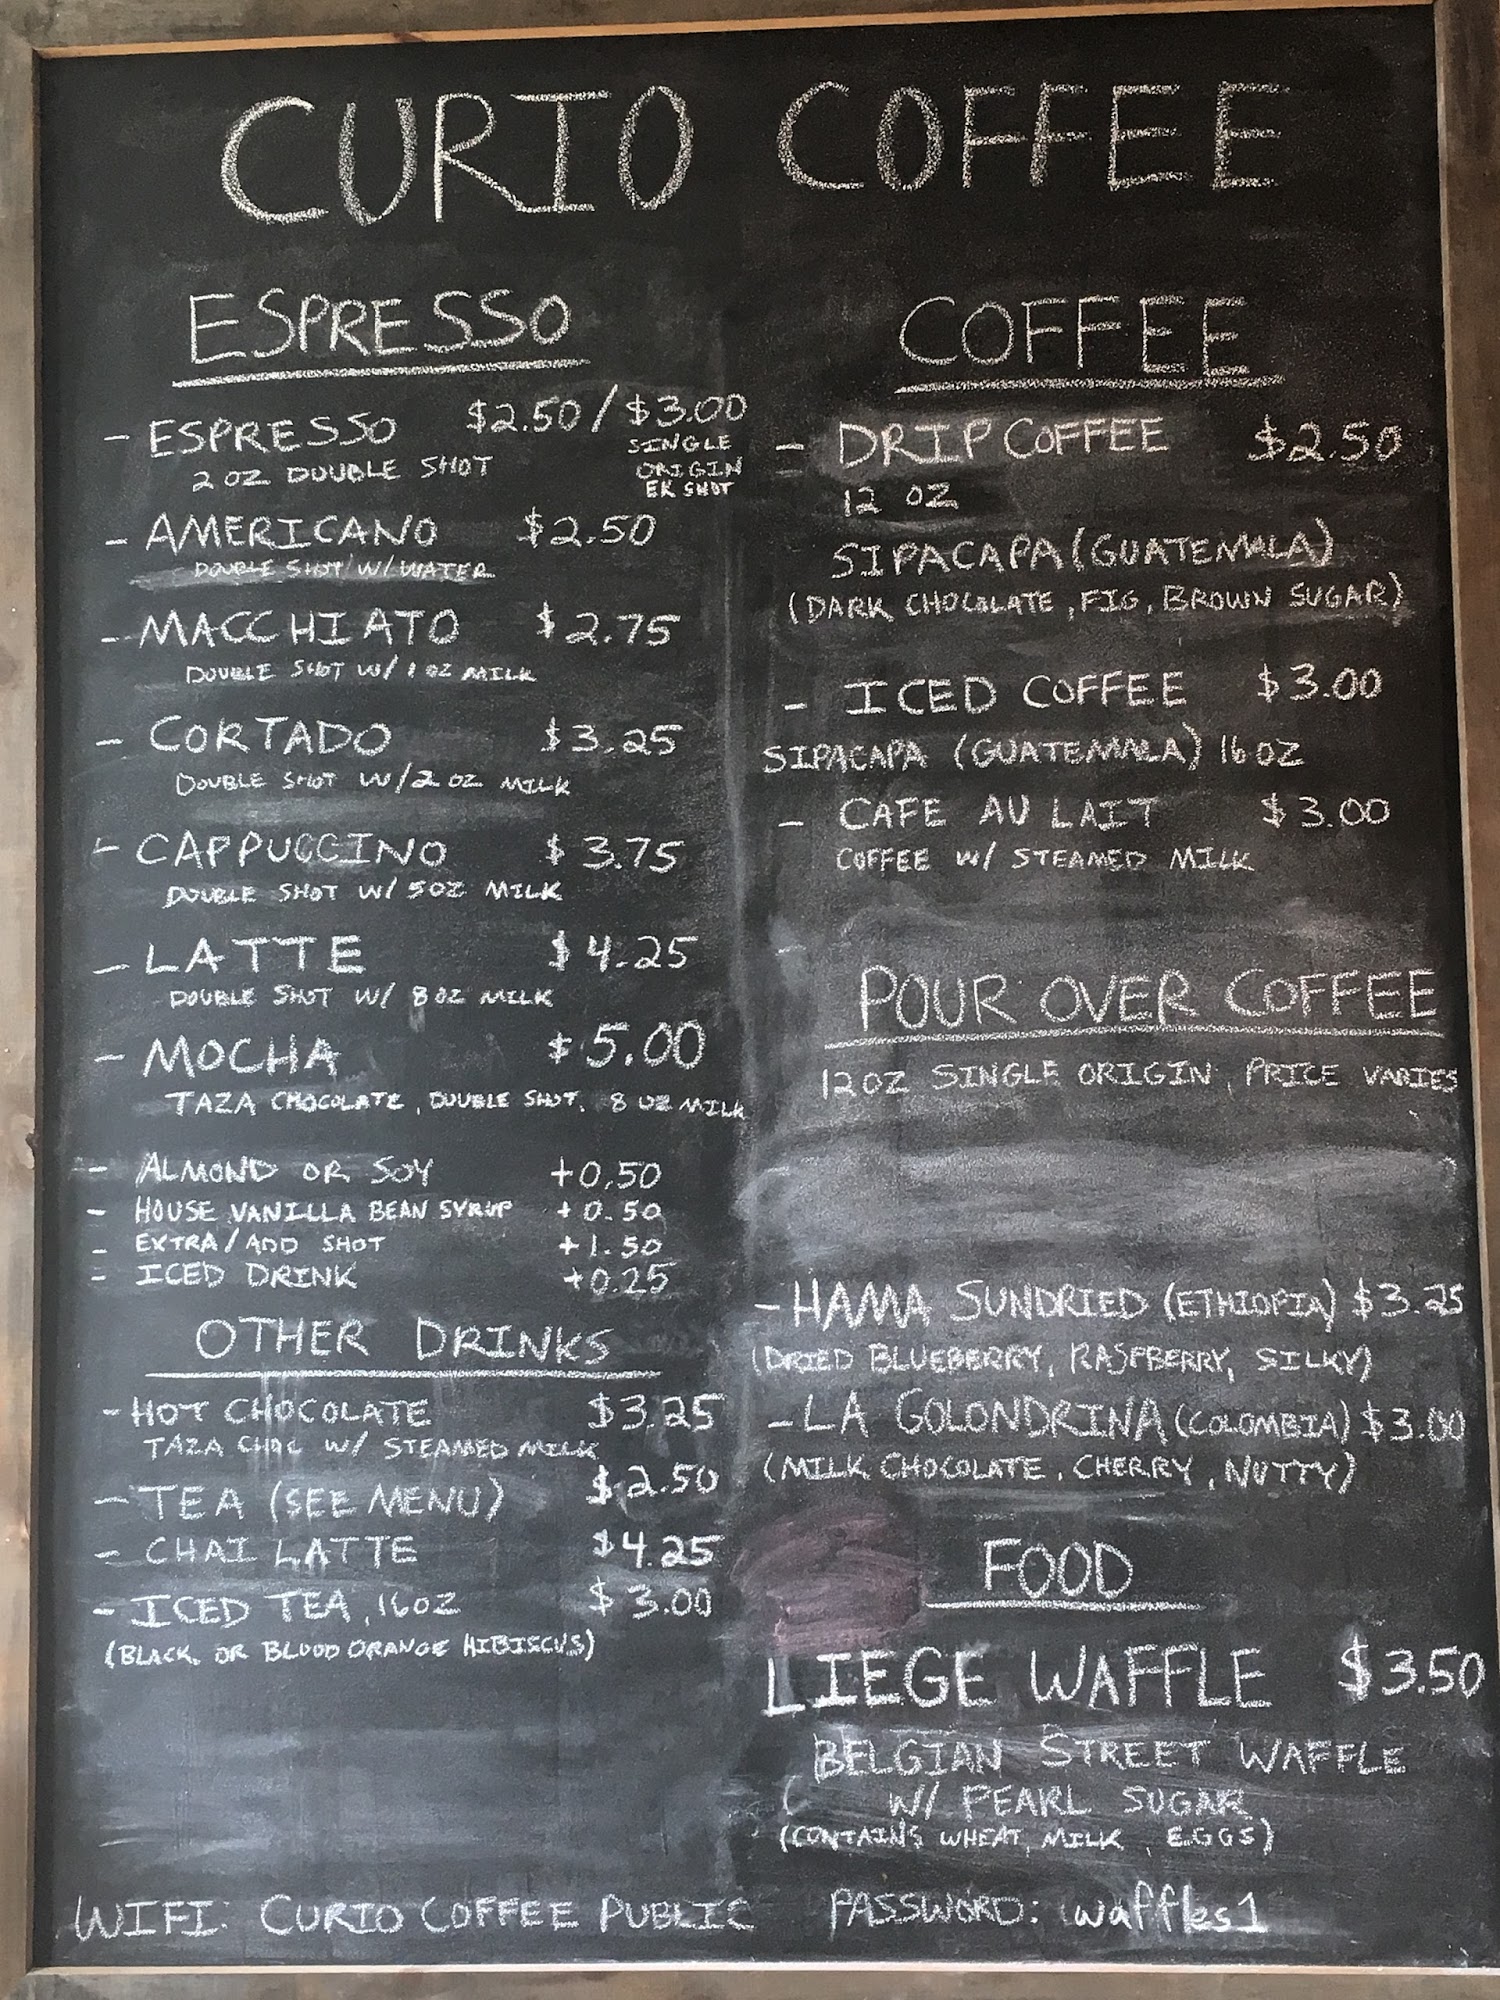 CURIO COFFEE
ESPRESSO
- ESPRESSO $2.50 / $3.00
2 OZ DOUBLE SHOT
SINGLE
ORIGIN
EK SHOT
- AMERICANO $2.50
DOUBLE SHOT W/ WATER
- MACCHIATO $2.75
DOUBLE SHOT W/ 1 OZ MILK
- CORTADO $3.25
DOUBLE SHOT W/ 2 OZ MILK
- CAPPUCCINO $3.75
DOUBLE SHOT W/ 5OZ MILK
- LATTE $4.25
DOUBLE SHOT W/ 8 OZ MILK
- MOCHA $5.00
TAZA CHOCOLATE, DOUBLE SHOT, 8 OZ MILK
- ALMOND OR SOY +0.50
- HOUSE VANILLA BEAN SYRUP +0.50
- EXTRA/ADD SHOT +1.50
- ICED DRINK +0.25
OTHER DRINKS
- HOT CHOCOLATE $3.25
TAZA CHOC W/ STEAMED MILK
- TEA (SEE MENU) $2.50
- CHAI LATTE $4.25
- ICED TEA, 16OZ $3.00
(BLACK OR BLOOD ORANGE HIBISCUS)
COFFEE
- DRIP COFFEE $2.50
12 OZ
SIPACAPA (GUATEMALA)
(DARK CHOCOLATE, FIG, BROWN SUGAR)
- ICED COFFEE $3.00
SIPACAPA (GUATEMALA) 16 OZ
- CAFE AU LAIT $3.00
COFFEE W/ STEAMED MILK
POUR OVER COFFEE
12OZ SINGLE ORIGIN, PRICE VARIES
- HAMA SUNDRIED (ETHIOPIA) $3.25
(DRIED BLUEBERRY, RASPBERRY, SILKY)
- LA GOLONDRINA (COLOMBIA) $3.00
(MILK CHOCOLATE, CHERRY, NUTTY)
FOOD
LIEGE WAFFLE $3.50
BELGIAN STREET WAFFLE
W/ PEARL SUGAR
(CONTAINS WHEAT, MILK, EGGS)
WIFI: CURIO COFFEE PUBLIC PASSWORD: waffles1